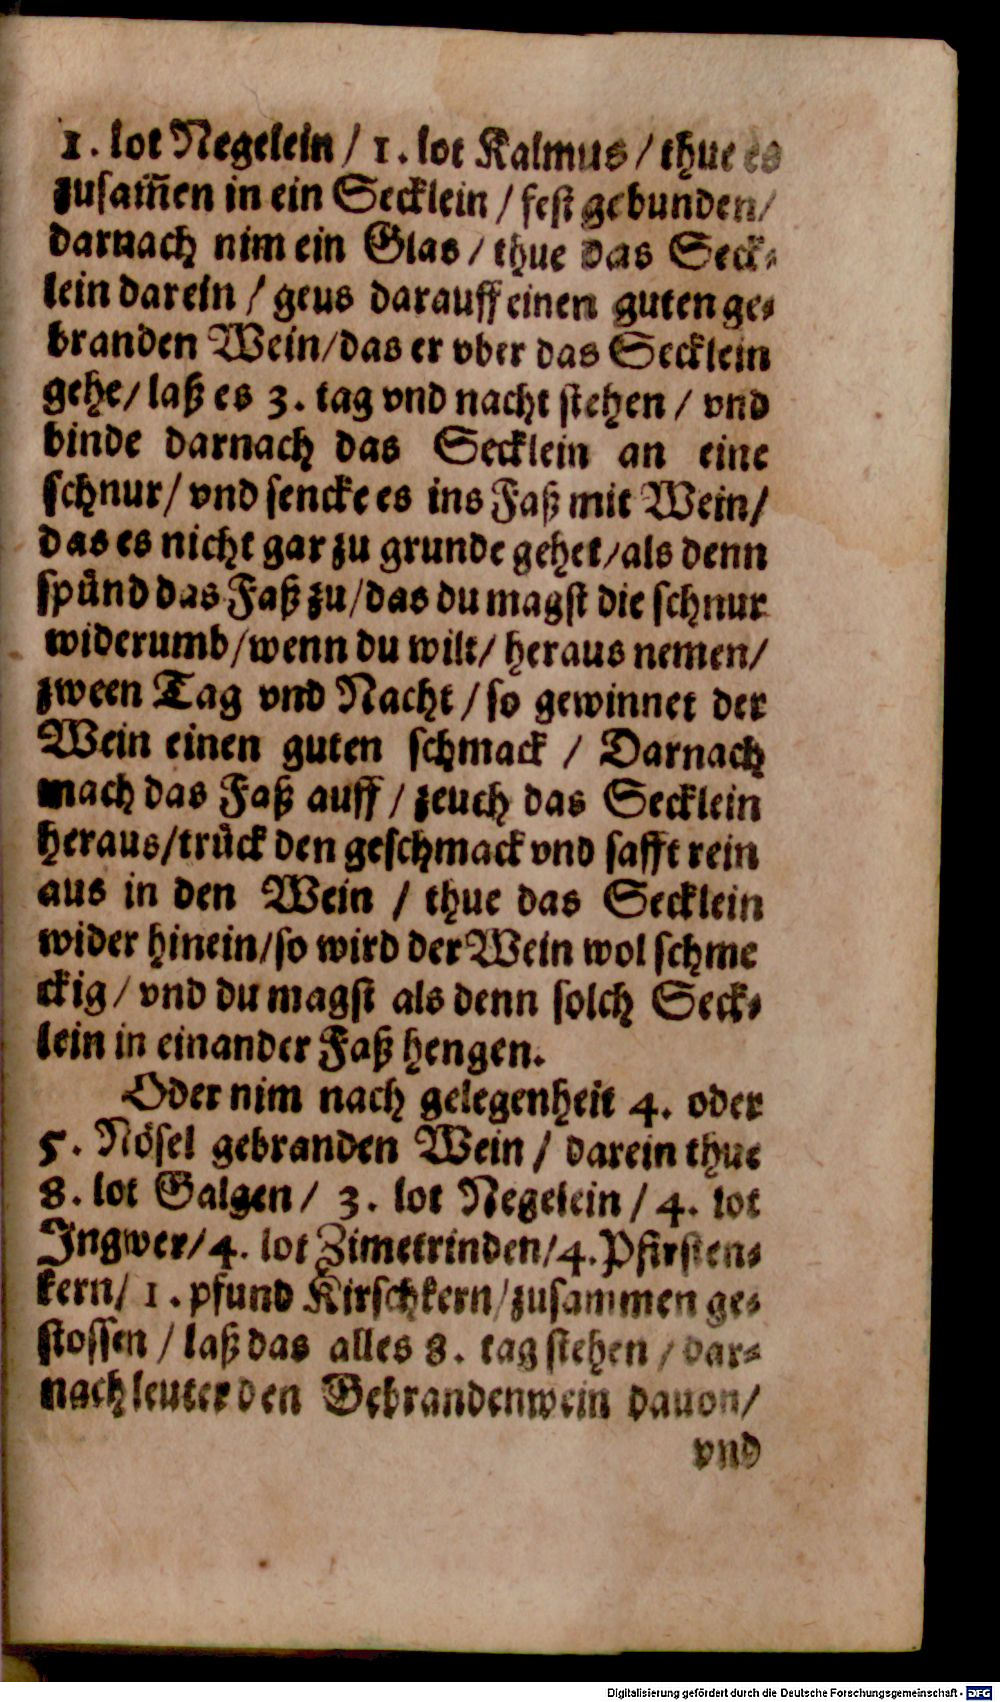 1. lot Negelein / 1. lot Kalmus / thue es
zusam̃en in ein Secklein / fest gebunden/
darnach nim ein Glas / thue das Seck⸗
lein darein / geus darauff einen guten ge⸗
branden Wein/das er vber das Secklein
gehe/ laß es 3. tag vnd nacht stehen / vnd
binde darnach das Secklein an eine
schnur/ vnd sencke es ins Faß mit Wein/
das es nicht gar zu grunde gehet/als denn
spuͤnd das Faß zu/das du magst die schnur
widerumb/wenn du wilt/ heraus nemen/
zween Tag vnd Nacht / so gewinnet der
Wein einen guten schmack / Darnach
mach das Faß auff / zeuch das Secklein
heraus/truͤck den geschmack vnd safft rein
aus in den Wein / thue das Secklein
wider hinein/so wird der Wein wol schme
ckig/ vnd du magst als denn solch Seck⸗
lein in einander Faß hengen.
Oder nim nach gelegenheit 4. oder
5. Nösel gebranden Wein / darein thue
8. lot Galgen / 3. lot Negelein / 4. lot
Ingwer/4. lot Zimetrinden/4. Pfirsten⸗
kern/ 1. pfund Kirschkern/zusammen ge⸗
stossen / laß das alles 8. tag stehen / dar⸗
nach leuter den Gebrandenwein dauon/
vnd
Digitalisierung gefördert durch die Deutsche Forschungsgemeinschaft - DFG